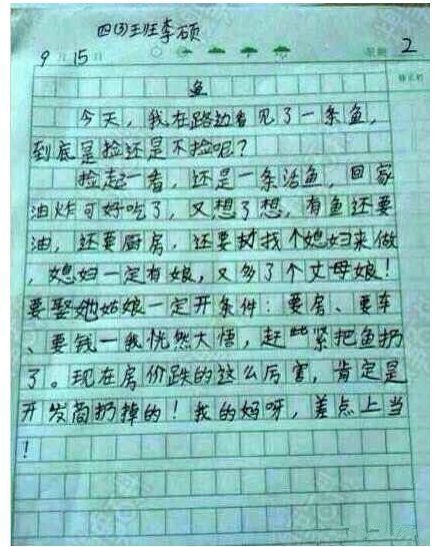 四(3)班李硕
9月15日 星期2
鱼
今天,我在路边看见了一条鱼,
到底是捡还是不捡呢?
捡起一看,还是一条活鱼,回家
油炸可好吃了,又想了想,有鱼还要
油,还要厨房,还要找个媳妇来做
,媳妇一定有娘,又多了个丈母娘!
要娶她姑娘一定开条件:要房、要车
、要钱—我恍然大悟,赶紧把鱼扔
了。现在房价跌的这么厉害,肯定是
开发商扔掉的!我的妈呀,差点上当
!